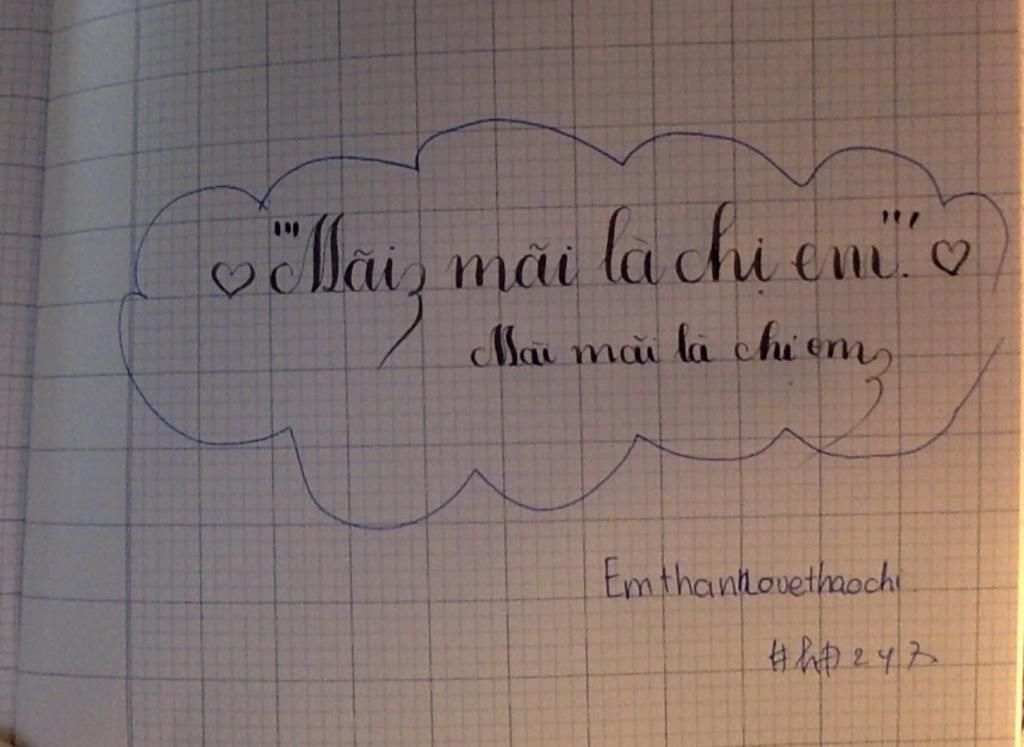 ♡"'Mãi mãi là chị em"'.♡
Mãi mãi là chi em
Emthanhlovethaochi
#hp247